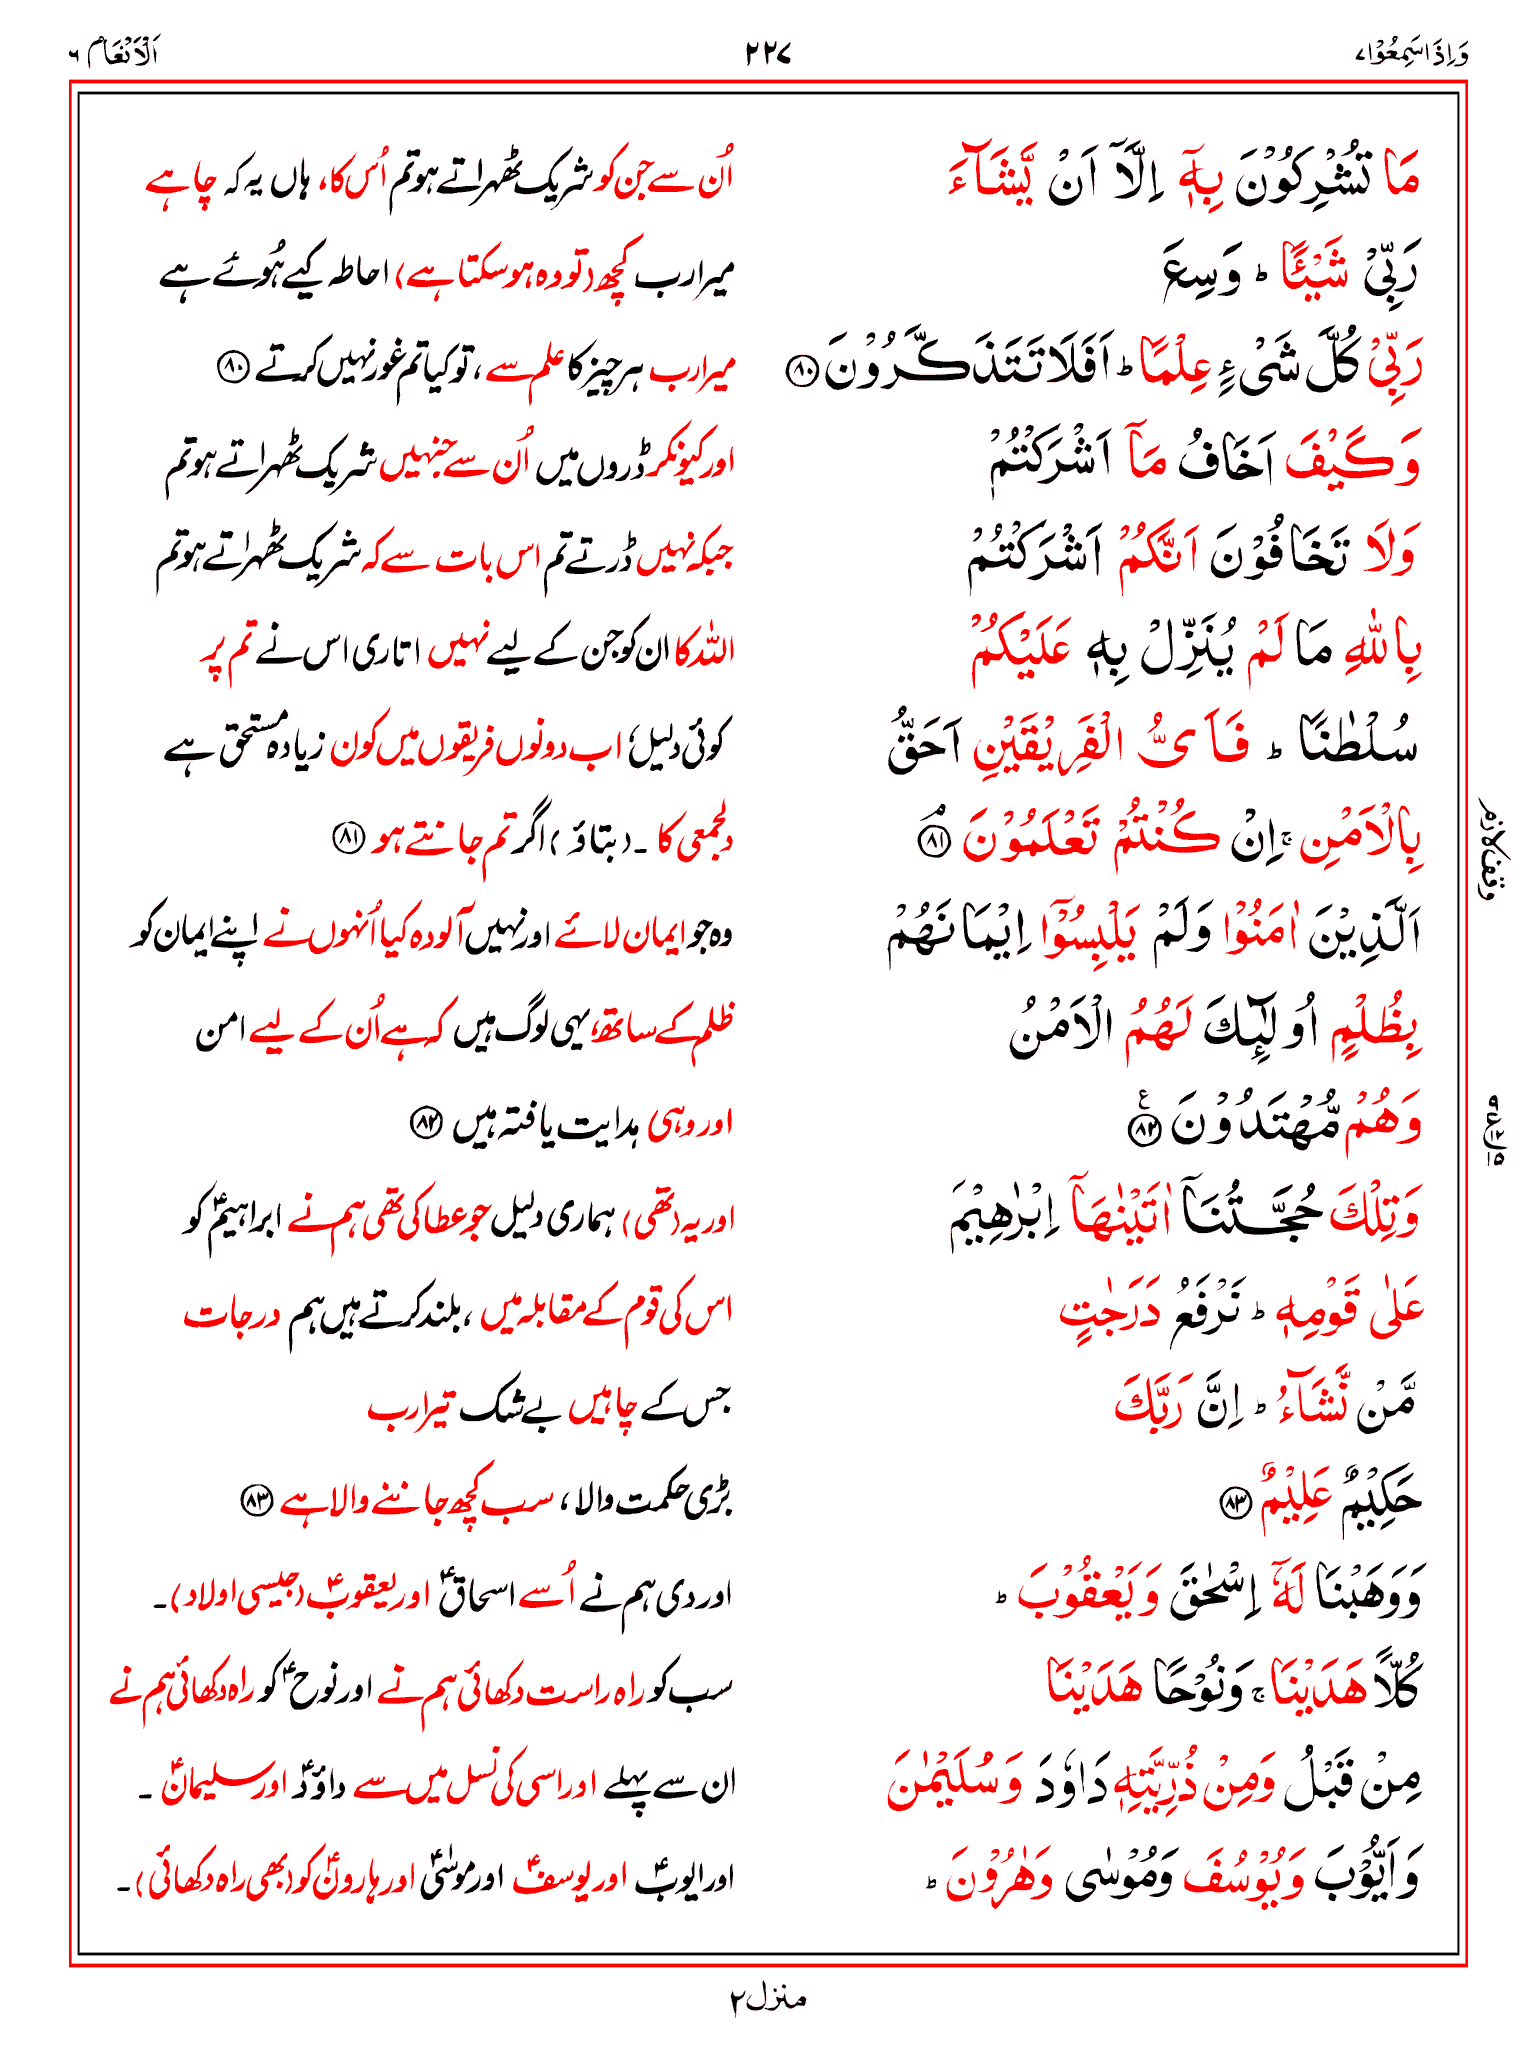 وَاِذَا سَمِعُوْا ۷ ۲۲۷ اَلْاَنْعَام ۶
مَا تُشْرِكُوْنَ بِهٖۤ اِلَّاۤ اَنْ يَّشَآءَ اُن سے جن کو شریک ٹھہراتے ہو تم اُس کا، ہاں یہ کہ چاہے
رَبِّىْ شَيْـًٔا ؕ وَسِعَ میرا رب کچھ (تو وہ ہوسکتا ہے) احاطہ کیے ہُوئے ہے
رَبِّىْ كُلَّ شَىْءٍ عِلْمًا ؕ اَفَلَا تَتَذَكَّرُوْنَ ۸۰ میرا رب ہر چیز کا علم سے، تو کیا تم غور نہیں کرتے ۸۰
وَكَيْفَ اَخَافُ مَاۤ اَشْرَكْتُمْ اور کیونکر ڈروں میں اُن سے جنہیں شریک ٹھہراتے ہو تم
وَلَا تَخَافُوْنَ اَنَّكُمْ اَشْرَكْتُمْ جبکہ نہیں ڈرتے تم اس بات سے کہ شریک ٹھہراتے ہو تم
بِاللّٰهِ مَا لَمْ يُنَزِّلْ بِهٖ عَلَيْكُمْ اللہ کا ان کو جن کے لیے نہیں اتاری اس نے تم پر
سُلْطٰنًا ؕ فَاَىُّ الْفَرِيْقَيْنِ اَحَقُّ کوئی دلیل؟ اب دونوں فریقوں میں کون زیادہ مستحق ہے
بِالْاَمْنِ ۚ اِنْ كُنْتُمْ تَعْلَمُوْنَ ۘ ۸۱ دلجمعی کا ۔ (بتاؤ) اگر تم جانتے ہو ۸۱
وقف لازم
اَلَّذِيْنَ اٰمَنُوْا وَلَمْ يَلْبِسُوْۤا اِيْمَانَهُمْ وہ جو ایمان لائے اور نہیں آلودہ کیا اُنہوں نے اپنے ایمان کو
بِظُلْمٍ اُولٰٓئِكَ لَهُمُ الْاَمْنُ ظلم کے ساتھ، یہی لوگ ہیں کہ ہے اُن کے لیے امن
وَهُمْ مُّهْتَدُوْنَ ۸۲ اور وہی ہدایت یافتہ ہیں ۸۲
وَتِلْكَ حُجَّـتُنَاۤ اٰتَيْنٰهَاۤ اِبْرٰهِيْمَ اور یہ (تھی) ہماری دلیل جو عطا کی تھی ہم نے ابراہیمؑ کو
عَلٰى قَوْمِهٖ ؕ نَرْفَعُ دَرَجٰتٍ اس کی قوم کے مقابلہ میں، بلند کرتے ہیں ہم درجات
مَّنْ نَّشَآءُ ؕ اِنَّ رَبَّكَ جس کے چاہیں بے شک تیرا رب
حَكِيْمٌ عَلِيْمٌ ۸۳ بڑی حکمت والا، سب کچھ جاننے والا ہے ۸۳
وَوَهَبْنَا لَهٗۤ اِسْحٰقَ وَيَعْقُوْبَ ؕ اور دی ہم نے اُسے اسحاقؑ اور یعقوبؑ (جیسی اولاد)۔
كُلًّا هَدَيْنَا ۚ وَنُوْحًا هَدَيْنَا سب کو راہ راست دکھائی ہم نے اور نوحؑ کو راہ دکھائی ہم نے
مِنْ قَبْلُ وَمِنْ ذُرِّيَّتِهٖ دَاوٗدَ وَسُلَيْمٰنَ ان سے پہلے اور اسی کی نسل میں سے داؤدؑ اور سلیمانؑ ۔
وَاَيُّوْبَ وَيُوْسُفَ وَمُوْسٰى وَهٰرُوْنَ ؕ اور ایوبؑ اور یوسفؑ اور موسٰیؑ اور ہارونؑ کو (بھی راہ دکھائی)۔
منزل ۲